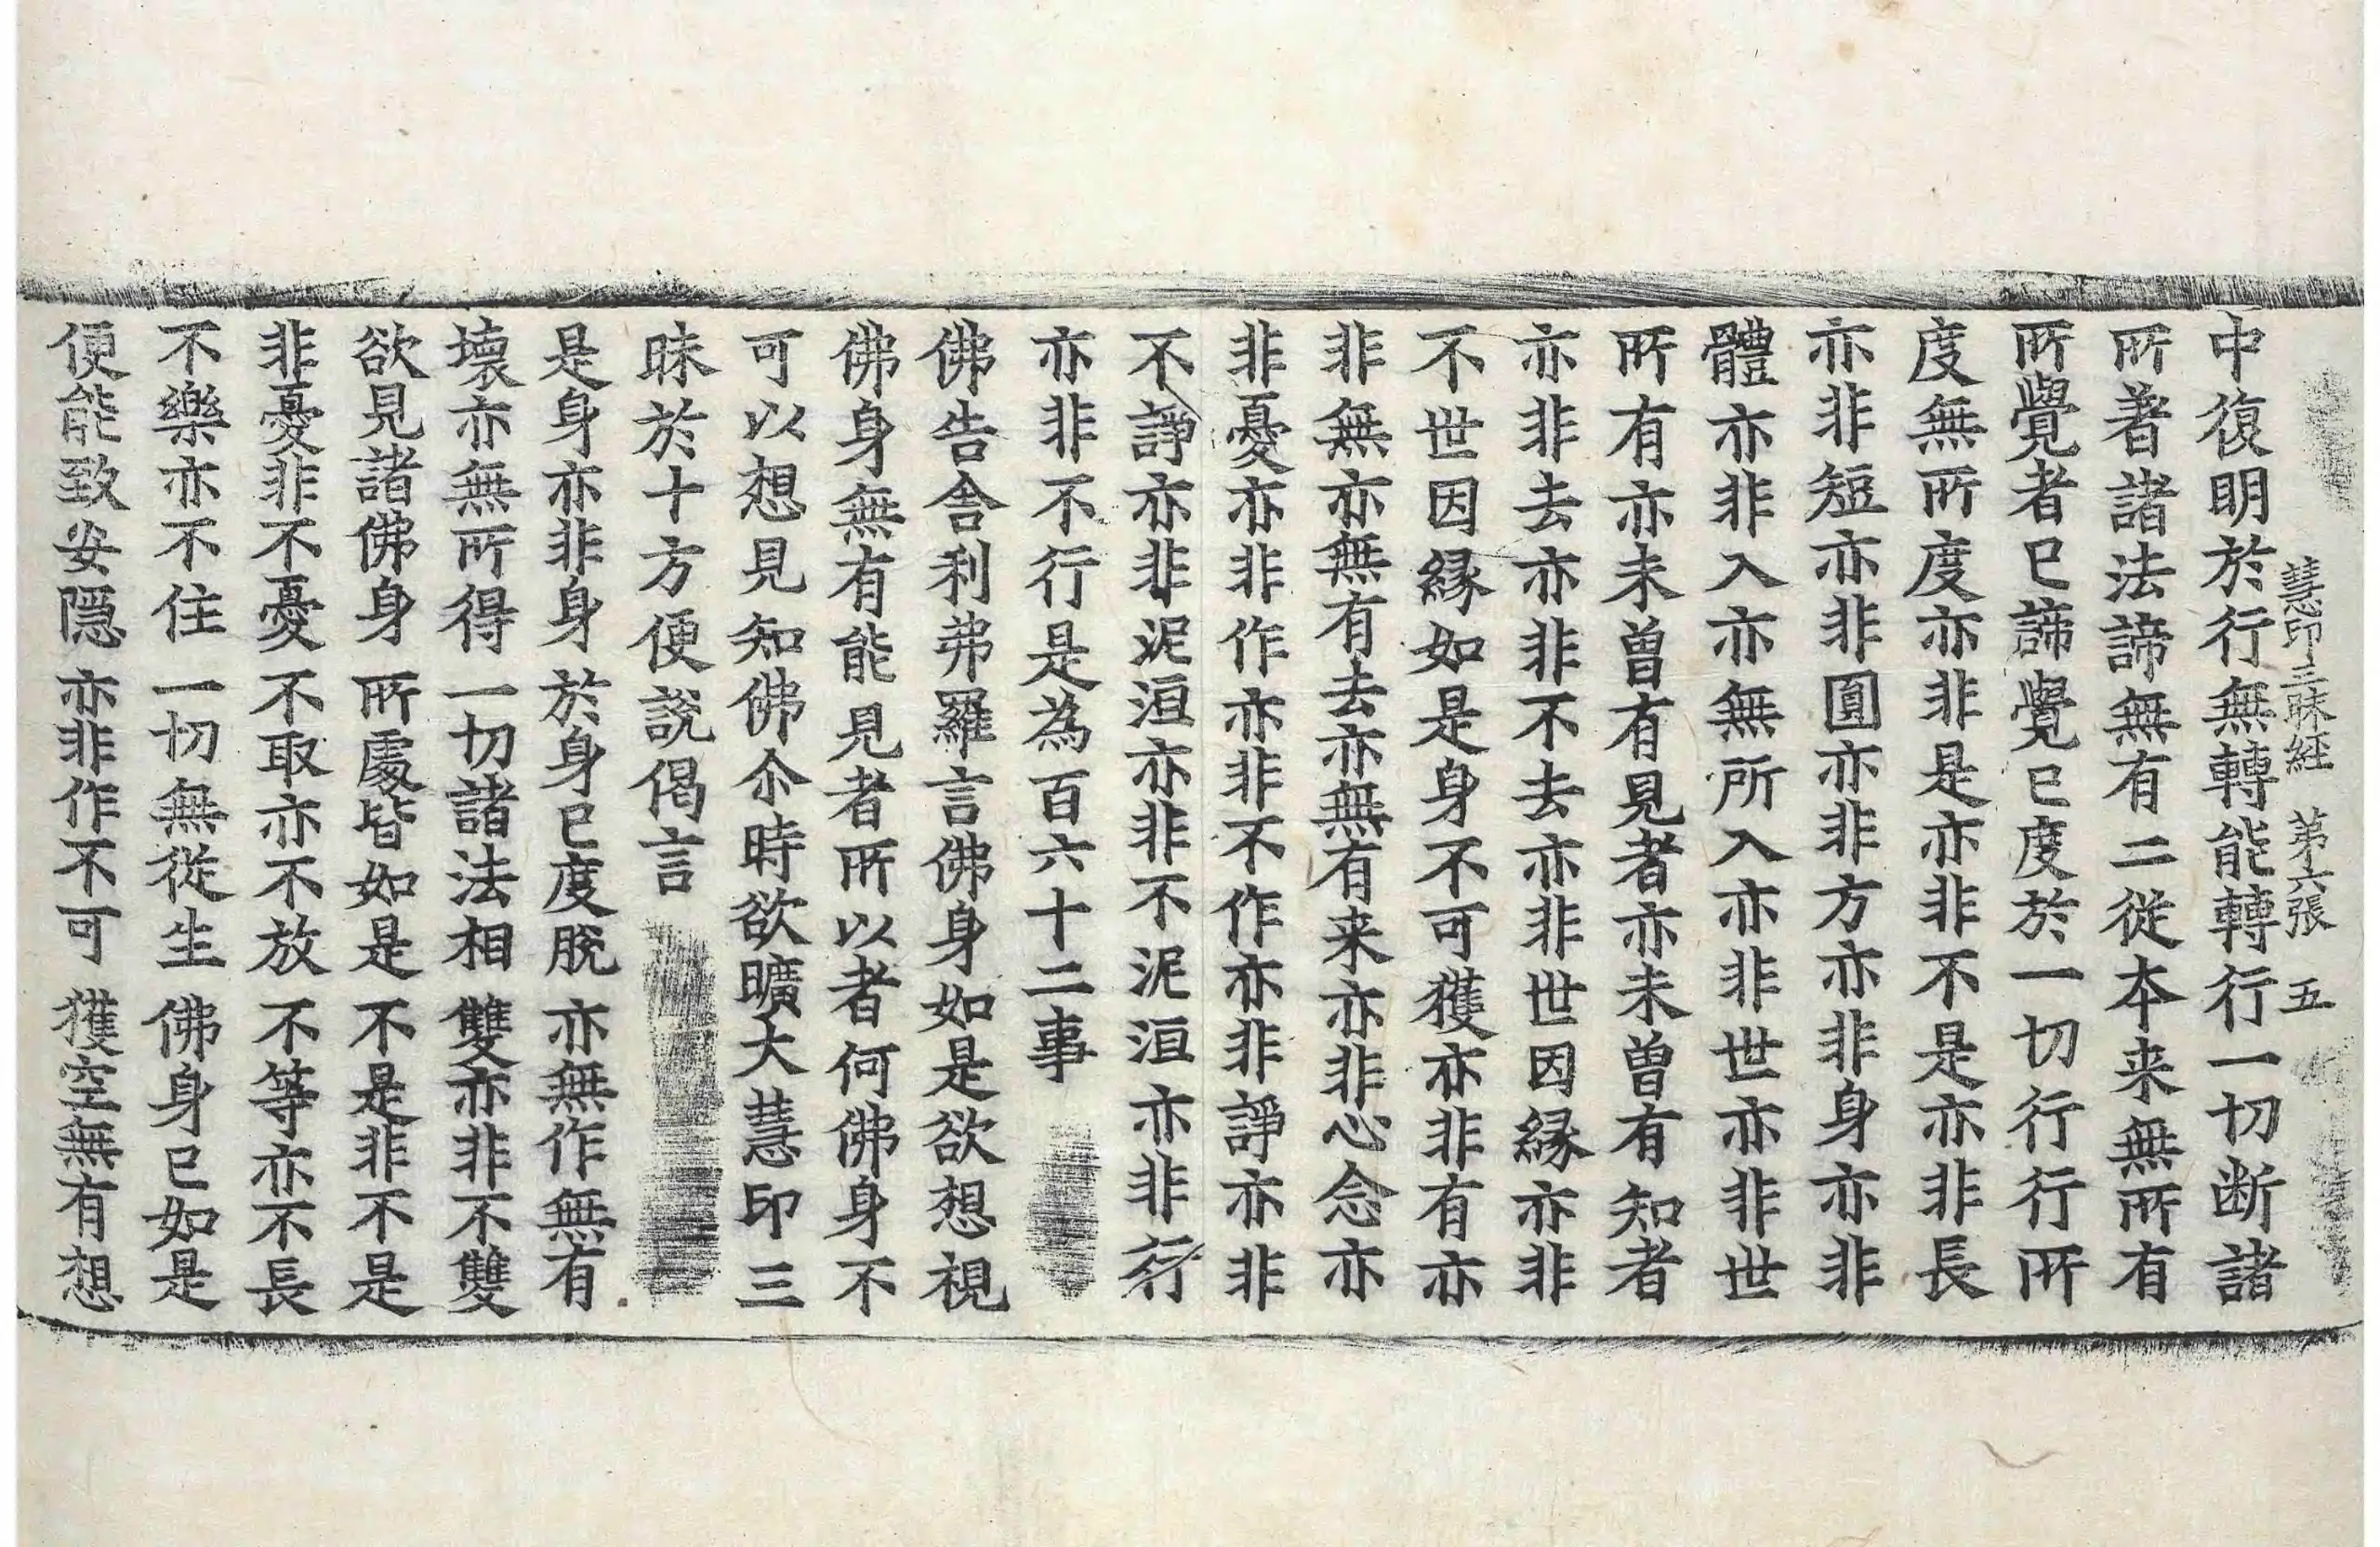 慧印三昧経 第六張 五
中復明於行無轉能轉行一切断諸
所著諸法諦無有二從本来無所有
所覺者已諦覺已度於一切行行所
度無所度亦非是亦非不是亦非長
亦非短亦非圓亦非方亦非身亦非
體亦非入亦無所入亦非世亦非世
所有亦未曽有見者亦未曽有知者
亦非去亦非不去亦非世因縁亦非
不世因縁如是身不可獲亦非有亦
非無亦無有去亦無有来亦非心念亦
非憂亦非作亦非不作亦非諍亦非
不諍亦非泥洹亦非不泥洹亦非行
亦非不行是為百六十二事
佛告舎利弗羅言佛身如是欲想視
佛身無有能見者所以者何佛身不
可以想見知佛尒時欲曠大慧印三
昧於十方便說偈言
是身亦非身 於身已度脫 亦無作無有
壊亦無所得 一切諸法相 雙亦非不雙
欲見諸佛身 所處皆如是 不是非不是
非憂非不憂 不取亦不放 不等亦不長
不樂亦不住 一切無從生 佛身已如是
便能致安隠 亦非作不可 獲空無有想